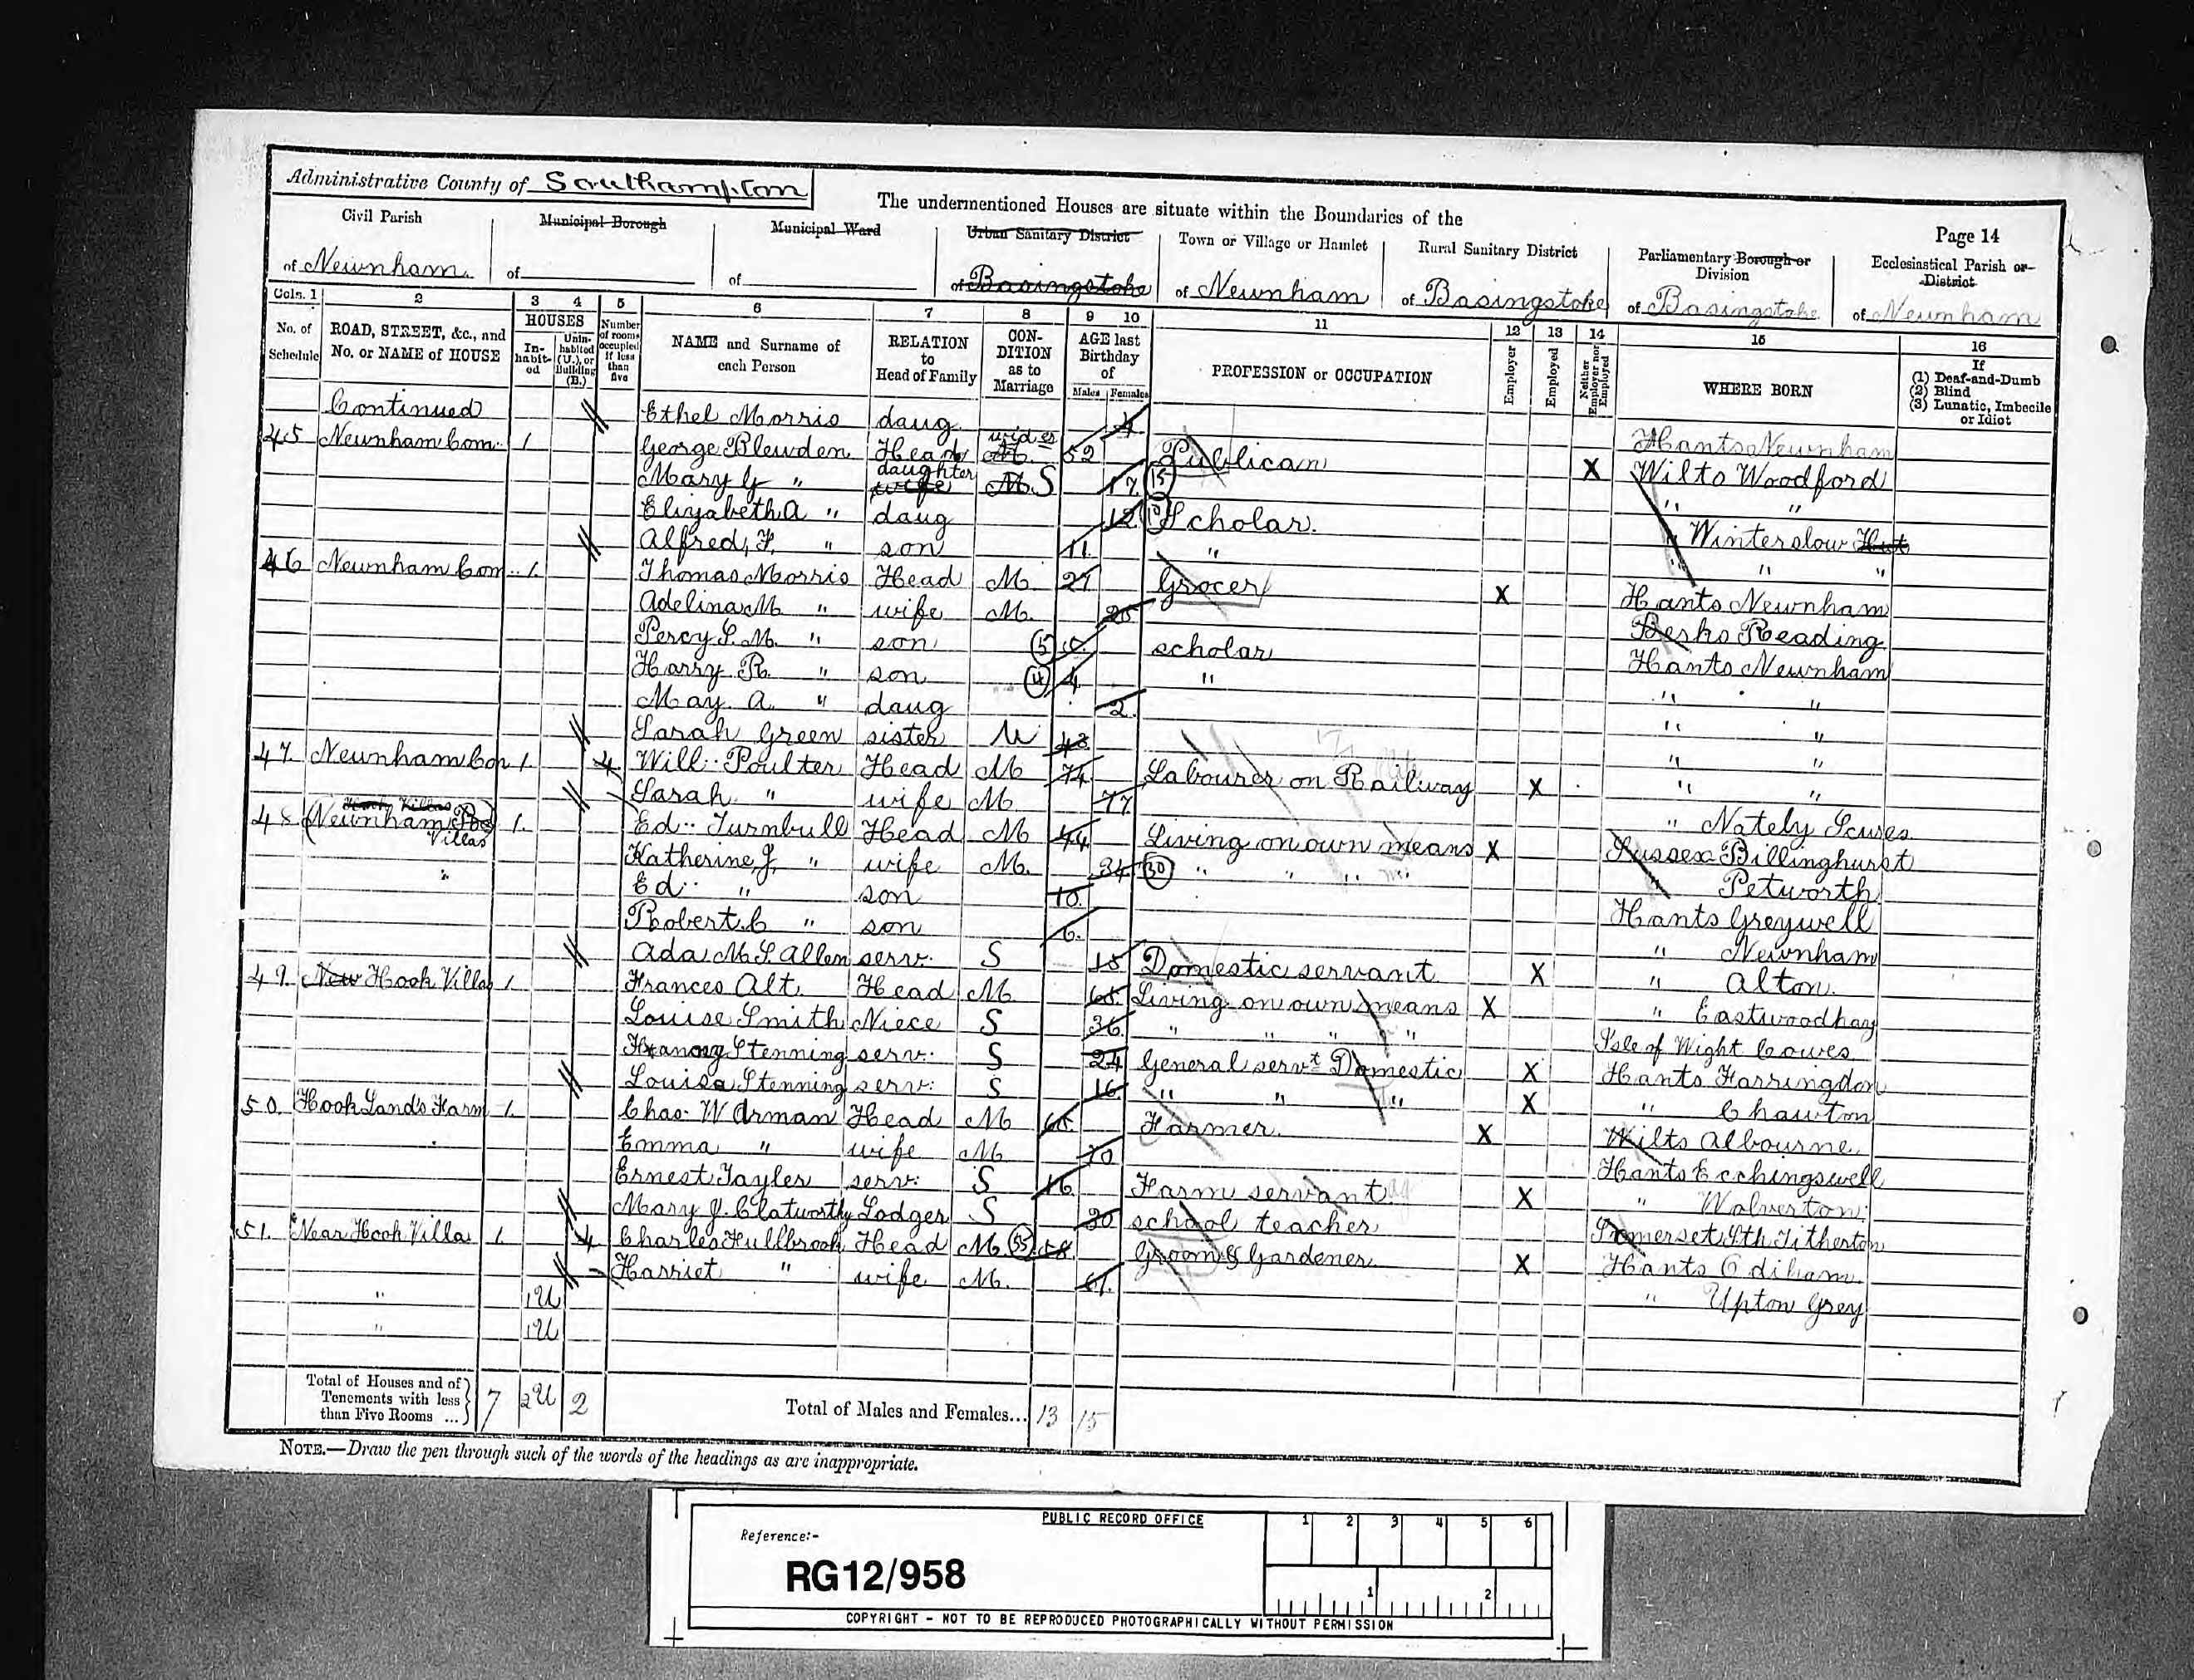 Administrative County of Southampton
The undermentioned Houses are situate within the Boundaries of the
Page 14
Civil Parish
Municipal Borough
Municipal Ward
Urban Sanitary District
Town or Village or Hamlet
Rural Sanitary District
Parliamentary Borough or Division
Ecclesiastical Parish or District
of Newnham
of
of
of Basingstoke
of Newnham
of Basingstoke
of Basingstoke
of Newnham
Cols. 1 2 3 4 5 6 7 8 9 10 11 12 13 14 15 16
No. of Schedule
ROAD, STREET, &c., and No. or NAME of HOUSE
HOUSES
In-habit-ed
Unin-habited (U.), or Building (B.)
Number of rooms occupied if less than five
NAME and Surname of each Person
RELATION to Head of Family
CON-DITION as to Marriage
AGE last Birthday of
Males Females
PROFESSION or OCCUPATION
Employer
Employed
Neither Employer nor Employed
WHERE BORN
If
(1) Deaf-and-Dumb
(2) Blind
(3) Lunatic, Imbecile or Idiot
Continued Ethel Morris daug 4 Hants Newnham
45 Newnham Com. 1 George Blewden Head M. wider 52 Publican X Wilts Woodford
Mary G " wife daughter M. S 17 (15) " "
Elizabeth A " daug 12 Scholar. " Winterslow Hut
Alfred, F. " son 11. " " " "
46 Newnham Com.. 1. Thomas Morris Head M 27 Grocer X Hants Newnham
Adelina M " wife M. 25 Berks Reading
Percy S. M. " son (5) scholar Hants Newnham
Harry R. " son (4) 4 " " "
May A. " daug 2. " "
Sarah Green sister 43 " "
47. Newnham Com 1. 4 Will.. Poulter Head M 74 Labourer on Railway X " "
Sarah " wife M 77 " Nately Scures
48. Hook Villas (Newnham Villas 1. Ed.. Turnbull Head M 44 Living on own means X Sussex Billinghurst
" Katherine, J, " wife M. 34 (30) " " " " Petworth
Ed.. " son 10. Hants Greywell
Robert. C " son 6. " Newnham
Ada M. S. Allen serv. S 15 Domestic servant X " Alton.
49. New Hook Villas 1 Frances Alt. Head M 65. Living on own means X " Eastwoodhay
Louise Smith Niece S 36. " " " " Isle of Wight Cowes
Stenning serv. S 24 General servt Domestic X Hants Farringdon
Louisa Stenning serv: S 16. " " " X " Chawton
50. Hook Lands Farm 1. Chas. W Arman Head M 65. Farmer X Wilts Albourne.
Emma " wife M 70 Hants Ecchingswell
Ernest Tayler serv: S 16. Farm servant X " Wolverton.
Mary J. Clatworthy Lodger S 30 school teacher Somerset Sth Titherton
51. Near Hook Villa 1. 4 Charles Fullbrook Head M (55) 58 Groom & Gardener X Hants Odiham.
Harriet " wife M. 61. " Upton Grey
" 1U
" 1U
Total of Houses and of Tenements with less than Five Rooms ... 7 2U 2
Total of Males and Females... 13 15
NOTE.—Draw the pen through such of the words of the headings as are inappropriate.
PUBLIC RECORD OFFICE
Reference:-
RG12/958
1 2 3 4 5 6
1 2
COPYRIGHT - NOT TO BE REPRODUCED PHOTOGRAPHICALLY WITHOUT PERMISSION